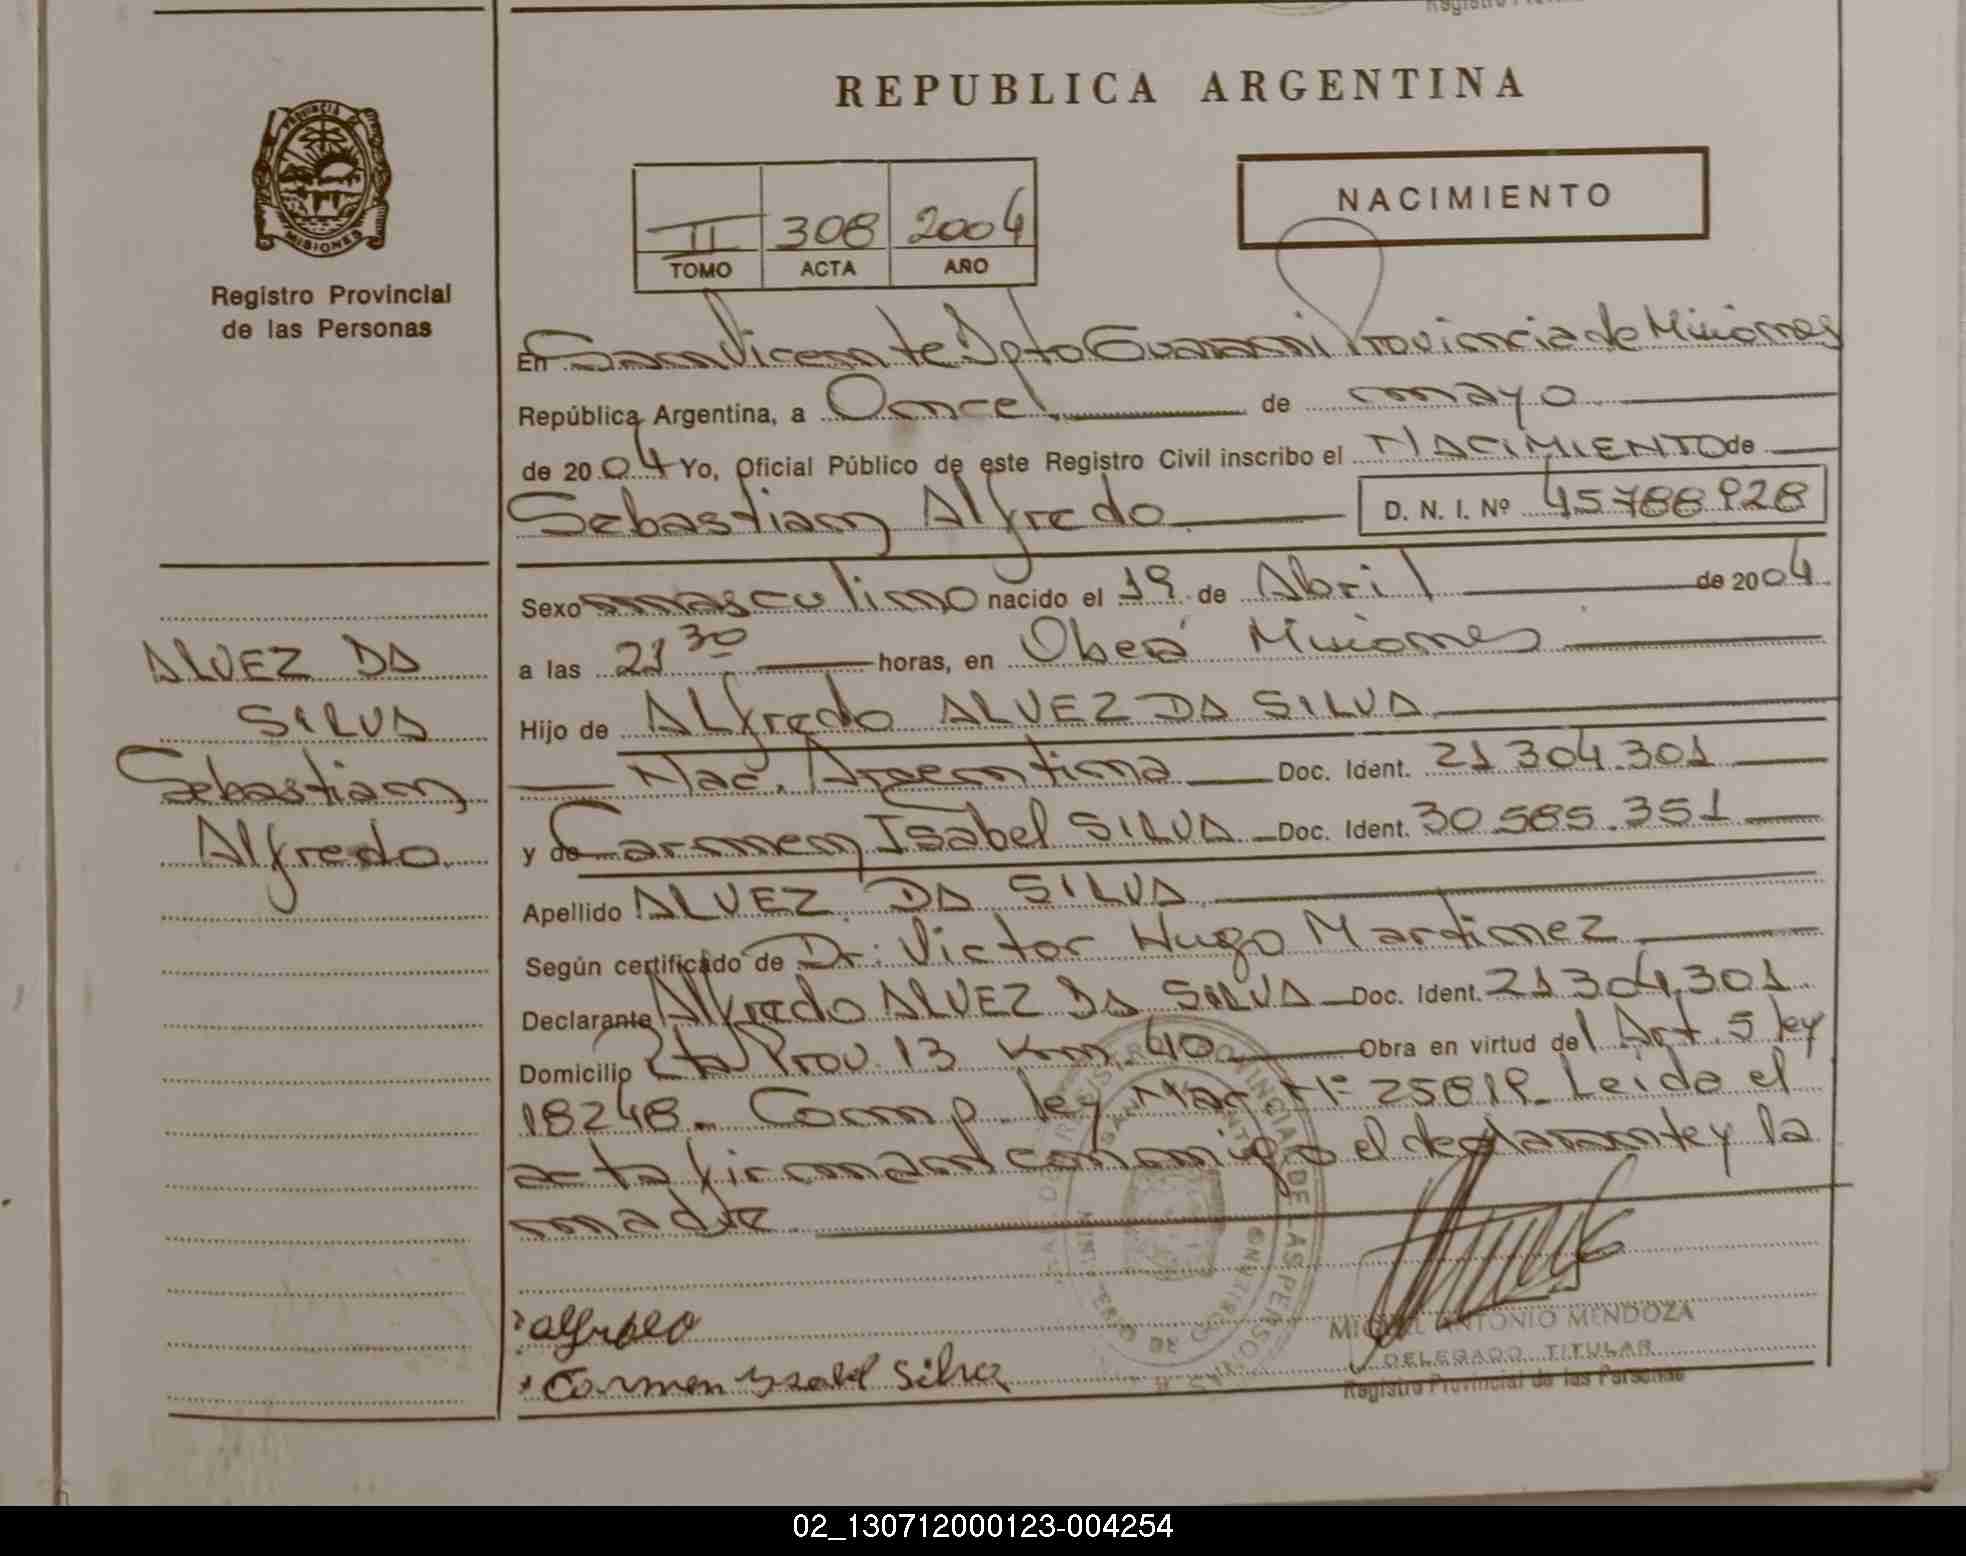 REPUBLICA ARGENTINA
PROVINCIA DE
MISIONES
Registro Provincial
de las Personas
NACIMIENTO
II 308 2004
TOMO ACTA AÑO
En San Vicente Dpto Guarani Provincia de Misiones
República Argentina, a Once de mayo
de 2004 Yo, Oficial Público de este Registro Civil inscribo el NACIMIENTO de
Sebastian Alfredo D. N. I. Nº 45788928
Sexo masculino nacido el 19 de Abril de 2004
a las 21 30 horas, en Oberá Misiones
Hijo de Alfredo ALVEZ DA SILVA
Nac. Argentina Doc. Ident. 21304.301
y de Carmen Isabel SILVA Doc. Ident. 30.585.351
Apellido ALVEZ DA SILVA
Según certificado de Dr. Victor Hugo Martinez
Declarante Alfredo ALVEZ DA SILVA Doc. Ident. 21304.301
Domicilio Rta Prov. 13 Km. 40 Obra en virtud del Art. 5 ley
18248. Comp. ley Nac Nº 25819. Leida el
acta firman conmigo el declarante y la
madre
ALVEZ DA
SILVA
Sebastian
Alfredo
alfredo
Carmen ysabel Silva
MIGUEL ANTONIO MENDOZA
DELEGADO TITULAR
Registro Provincial de las Personas
02_130712000123-004254